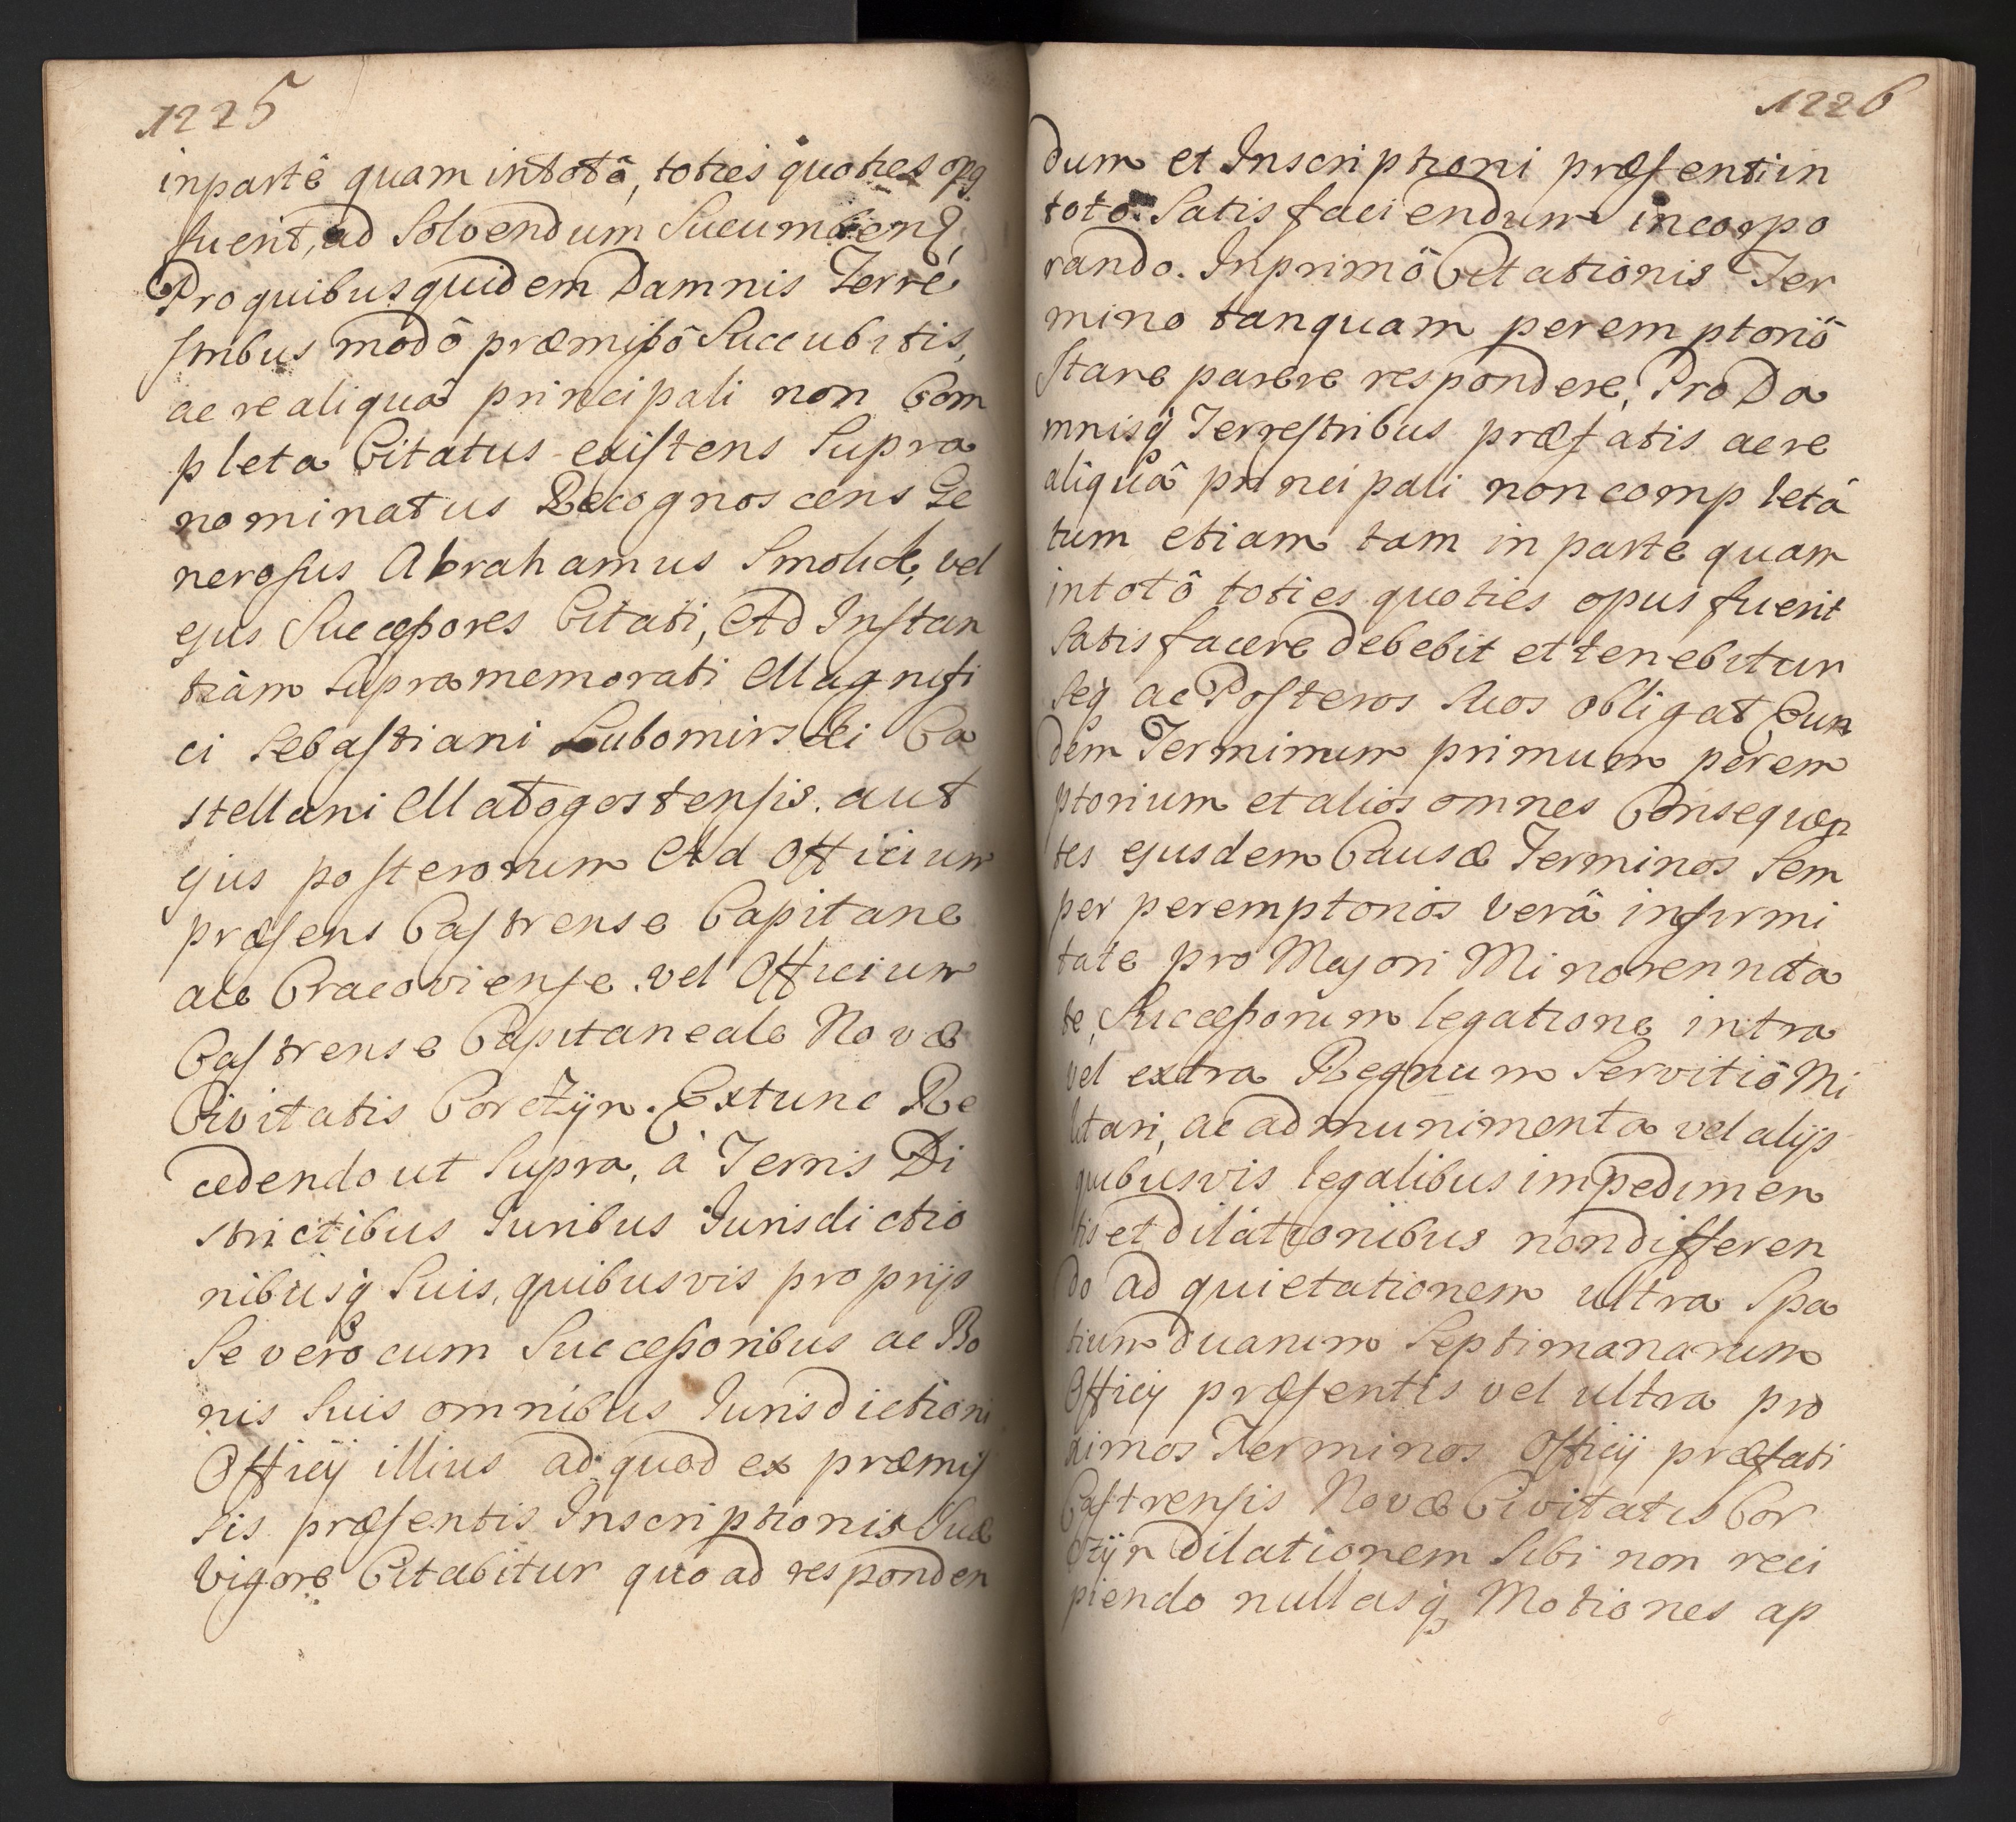 1225
inpartê quam intotâ, toties quoties opg
fuerit, ad Solvendum Sucumbeng,
Pro quibus quidem Damnis Terre
stribus modô præmißô Succubitis,
ac re aliquâ principali non Com
pleta Citatus existens Supra
nominatus Recognoscens Ge
nerosus Abrahamus Smolick, vel
ejus Succeßores Citati, Ad Instan
tiàm Supramemorati Magnifi
ci Sebastiani Lubomirskti Ca
stellani Matogostensis. aut
ejus posterorum Ad Officium
præsens Castrense Capitane
ale Cracoviense. vel Officium
Castrense Capitaneale Novæ
Civitatis Corczÿn. Extunc Re
cedendo ut Supra, à Terris Di
strictibus Juribus Jurisdictio
nibusq̀ Suis, quibusvis proprijs
Se verò cum Succeßoribus ac Bo
nis Suis omnibus Jurisdictioni
Officij illius ad quod ex præmis
sis præsentis Inscriptionis Suæ
vigore Citabitur quo ad responden
1226
dum et Inscriptioni præsenti in
totô Satisfaciendum incorpo
rando. Inprimô Citationis Ter
mino tanquam peremptoriô
Stare parere respondere, Pro Da
mnisq̀ Terrestribus præfatis ac re
aliquâ principali non completâ
tum etiam tam in partê quam
intotô toties quoties opus fuerit
Satisfacere debebit et tenebitur
Seq̀ ac Posteros Suos obligat Eun
dem Terminum primum perem
ptorium et alios omnes Consequen
tes ejusdem Causæ Terminos Sem
per peremptorios verâ infirmi
tate pro Majori Minorennita
te, Succeßorum legatione intra
vel extra Regnum Servitiô Mi
litari, ac ad munimenta vel alijs
quibusvis legalibus impedimen
tis et dilationibus non differen
do ad quietationem ultra Spa
tium duarum Septimanarum
Officij præsentis vel ultra pro
ximos Terminos Officij præfati
Castrensis Novæ Civitatis Cor
czÿn dilationem Sibi non reci
piendo nullasq̀ Motiones ap